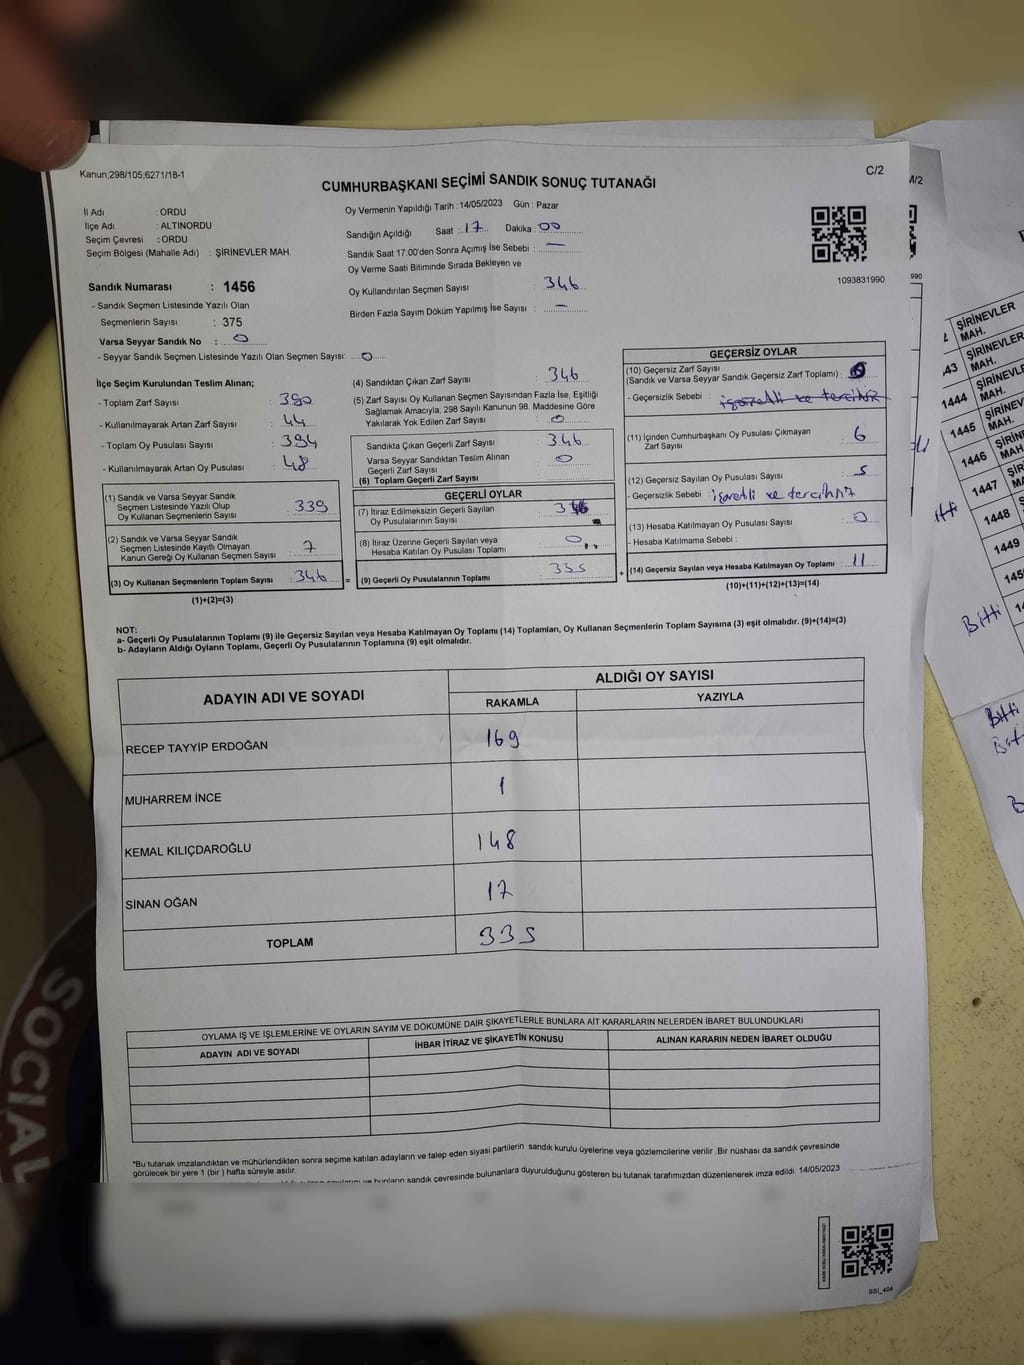 Kanun;298/105;6271/18-1
C/2
CUMHURBAŞKANI SEÇİMİ SANDIK SONUÇ TUTANAĞI
İl Adı : ORDU
İlçe Adı : ALTINORDU
Seçim Çevresi : ORDU
Seçim Bölgesi (Mahalle Adı) : ŞİRİNEVLER MAH.
Oy Vermenin Yapıldığı Tarih : 14/05/2023 Gün : Pazar
Sandığın Açıldığı Saat : 17 Dakika : 00
Sandık Saat 17:00'den Sonra Açımış İse Sebebi : —
Oy Verme Saati Bitiminde Sırada Bekleyen ve
Oy Kullandırılan Seçmen Sayısı : 346
Birden Fazla Sayım Döküm Yapılmış İse Sayısı : —
1093831990
Sandık Numarası : 1456
- Sandık Seçmen Listesinde Yazılı Olan
Seçmenlerin Sayısı : 375
Varsa Seyyar Sandık No : 0
- Seyyar Sandık Seçmen Listesinde Yazılı Olan Seçmen Sayısı: 0
İlçe Seçim Kurulundan Teslim Alınan;
- Toplam Zarf Sayısı : 390
- Kullanılmayarak Artan Zarf Sayısı : 44
- Toplam Oy Pusulası Sayısı : 394
- Kullanılmayarak Artan Oy Pusulası : 48
(1) Sandık ve Varsa Seyyar Sandık
Seçmen Listesinde Yazılı Olup
Oy Kullanan Seçmenlerin Sayısı : 339
(2) Sandık ve Varsa Seyyar Sandık
Seçmen Listesinde Kayıtlı Olmayan
Kanun Gereği Oy Kullanan Seçmen Sayısı : 7
(3) Oy Kullanan Seçmenlerin Toplam Sayısı : 346 =
(1)+(2)=(3)
(4) Sandıktan Çıkan Zarf Sayısı : 346
(5) Zarf Sayısı Oy Kullanan Seçmen Sayısından Fazla İse, Eşitliği
Sağlamak Amacıyla, 298 Sayılı Kanunun 98. Maddesine Göre
Yakılarak Yok Edilen Zarf Sayısı : 0
Sandıkta Çıkan Geçerli Zarf Sayısı : 346
Varsa Seyyar Sandıktan Teslim Alınan
Geçerli Zarf Sayısı : 0
(6) Toplam Geçerli Zarf Sayısı :
GEÇERLİ OYLAR
(7) İtiraz Edilmeksizin Geçerli Sayılan
Oy Pusulalarının Sayısı :
(8) İtiraz Üzerine Geçerli Sayılan veya
Hesaba Katılan Oy Pusulası Toplamı : 0
(9) Geçerli Oy Pusulalarının Toplamı : 335 +
GEÇERSİZ OYLAR
(10) Geçersiz Zarf Sayısı
(Sandık ve Varsa Seyyar Sandık Geçersiz Zarf Toplamı) :
- Geçersizlik Sebebi :
(11) İçinden Cumhurbaşkanı Oy Pusulası Çıkmayan
Zarf Sayısı : 6
(12) Geçersiz Sayılan Oy Pusulası Sayısı : 5
- Geçersizlik Sebebi : işaretli ve tercihsiz
(13) Hesaba Katılmayan Oy Pusulası Sayısı : 0
- Hesaba Katılmama Sebebi :
(14) Geçersiz Sayılan veya Hesaba Katılmayan Oy Toplamı : 11
(10)+(11)+(12)+(13)=(14)
NOT:
a- Geçerli Oy Pusulalarının Toplamı (9) ile Geçersiz Sayılan veya Hesaba Katılmayan Oy Toplamı (14) Toplamları, Oy Kullanan Seçmenlerin Toplam Sayısına (3) eşit olmalıdır. (9)+(14)=(3)
b- Adayların Aldığı Oyların Toplamı, Geçerli Oy Pusulalarının Toplamına (9) eşit olmalıdır.
ADAYIN ADI VE SOYADI
ALDIĞI OY SAYISI
RAKAMLA YAZIYLA
RECEP TAYYİP ERDOĞAN 169
MUHARREM İNCE 1
KEMAL KILIÇDAROĞLU 148
SİNAN OĞAN 17
TOPLAM 335
OYLAMA İŞ VE İŞLEMLERİNE VE OYLARIN SAYIM VE DÖKÜMÜNE DAİR ŞİKAYETLERLE BUNLARA AİT KARARLARIN NELERDEN İBARET BULUNDUKLARI
ADAYIN ADI VE SOYADI İHBAR İTİRAZ VE ŞİKAYETİN KONUSU ALINAN KARARIN NEDEN İBARET OLDUĞU
*Bu tutanak imzalandıktan ve mühürlendikten sonra seçime katılan adayların ve talep eden siyasi partilerin sandık kurulu üyelerine veya gözlemcilerine verilir .Bir nüshası da sandık çevresinde
görülecek bir yere 1 (bir ) hafta süreyle asılır.
ve bunların sandık çevresinde bulunanlara duyurulduğunu gösteren bu tutanak tarafımızdan düzenlenerek imza edildi. 14/05/2023
SSI_404
M/2
990
ŞİRİNEVLER
MAH.
43 ŞİRİNEVLER
MAH.
1444 ŞİRİNEVLER
MAH.
1445
MAH.
1446
MAH.
1447
1448
1449
Bitti
Bitti
SOCIAL